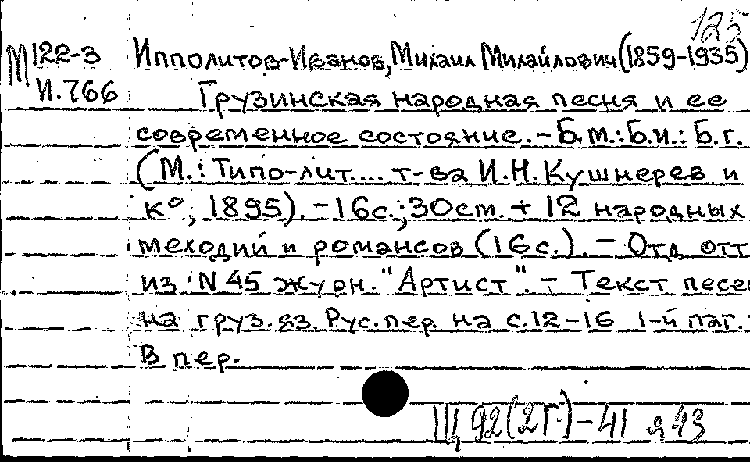 125
М 122-3 Ипполитов-Иванов, Михаил Михайлович (1859-1935)
И.766 Грузинская народная песня и ее
современное состояние. - Б.м.: Б.и.: Б.г.
(М.: Типо-лит.... т-ва И.Н. Кушнерев и
К°, 1895). - 16с.; 30ст. + 12 народных
мелодий и романсов (16с.). - Отд. отт
из N 45 журн. "Артист". - Текст песе
на груз. яз. Рус. пер. на с. 12-16 1-й паг.
В пер.
Щ 92(2Г)-41 я43